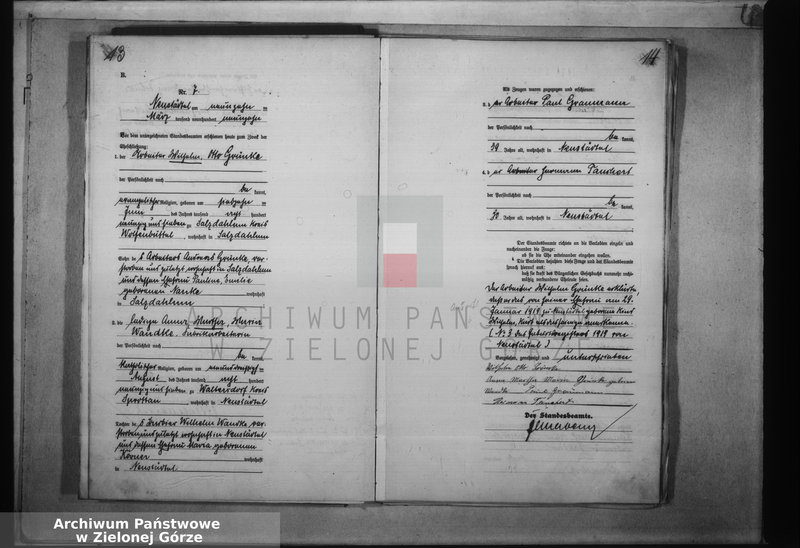 13
B.
Nr. 7.
Neustädtel am neunzehn ten
März tausend neunhundert neunzehn
Vor dem unterzeichneten Standesbeamten erschienen heute zum Zweck der
Eheschließung:
1. der Arbeiter Wilhelm, Otto Grünke
der Persönlichkeit nach
be kannt,
evangelischer Religion, geboren am
Juni des Jahres tausend acht hundert
neunzig und sieben zu Salzdahlum Kreis
Wolfenbüttel, wohnhaft in Salzdahlum
Sohn des Arbeiters Andreas Grünke, ver-
storben und zuletzt wohnhaft in Salzdahlum
und dessen Ehefrau Pauline, Emilie
geborenen
wohnhaft
in Salzdahlum
2. die ledige Anna, Martha, Maria
Wandke, Fabrikarbeiterin
der Persönlichkeit nach
be kannt,
katholischer Religion, geboren am
August des Jahres tausend acht hundert
neunzig und sieben zu Waltersdorf Kreis
Sprottau, wohnhaft in Neustädtel
Tochter des Wilhelm Wandke ver-
storben und zuletzt wohnhaft in Neustädtel
und dessen Ehefrau Maria geborenen
Körner wohnhaft
in Neustädtel
14
Als Zeugen waren zugezogen und erschienen:
3. der Arbeiter Paul Graumann
der Persönlichkeit nach
be kannt,
39 Jahre alt, wohnhaft in Neustädtel
4. der Arbeiter Hermann
der Persönlichkeit nach
be kannt,
30 Jahre alt, wohnhaft in Neustädtel
Der Standesbeamte richtete an die Verlobten einzeln und
nacheinander die Frage:
ob sie die Ehe miteinander eingehen wollen.
Die Verlobten bejahten diese Frage und der Standesbeamte
sprach hierauf aus:
daß sie kraft des Bürgerlichen Gesetzbuchs nunmehr recht-
mäßig verbundene Eheleute seien.
Der Arbeiter Wilhelm Grünke erklärte
daß er das von seiner Ehefrau am 29.
Januar 1919 zu Neustädtel geborene Kind
als das seinige anerkenne.
( Nr. 3 des Geburtsregisters 1919 von
Neustädtel )
Vorgelesen, genehmigt und unterschrieben
Wilhelm Otto Grünke
Anna Martha Maria Grünke geborne
Wandke Paul Graumann
Hermann
Der Standesbeamte.
ARCHIWUM PAŃSTWOWE
W ZIELONEJ GÓRZE
Archiwum Państwowe
w Zielonej Górze